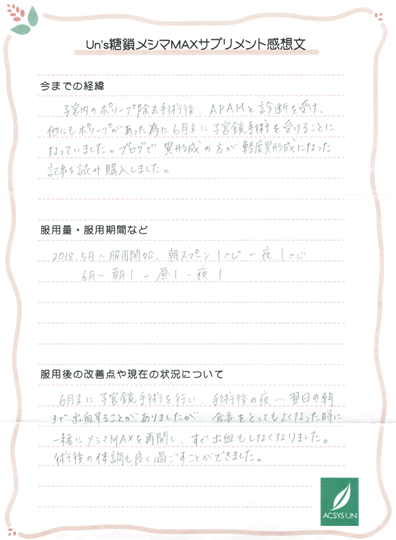 Un's糖鎖メシマMAXサプリメント感想文
今までの経緯
子宮内のポリープ除去手術後、APAMと診断を受け、
他にもポリープがあった為に6月末に子宮鏡手術を受けることに
なっていました。ブログで異形成の方が軽度異形成になった
記事を読み購入しました。
服用量・服用期間など
2018.5月〜服用開始、朝スプーン1さじ－夜1さじ
6月－朝1－昼1－夜1
服用後の改善点や現在の状況について
6月末に子宮鏡手術を行い、手術後の夜〜翌日の朝
まで出血することがありましたが、食事をとってもよくなった時に
一緒にメシマMAXを再開し、すぐ出血もしなくなりました。
術後の体調も良く過ごすことができました。
ACSYSUN